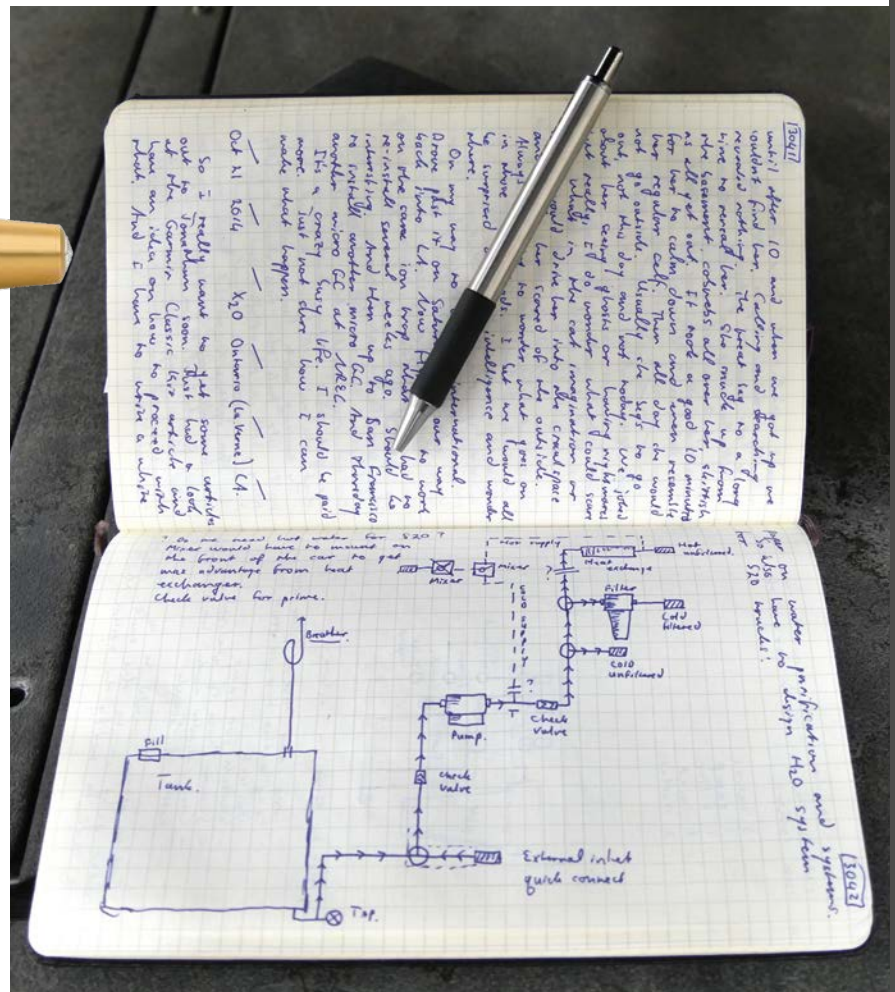 3041
until after 10 and when we got up we
couldn't find her. Calling and searching
revealed nothing. The to a long
time to reveal her. She made up from
the basement cobwebs all over her, skittish
as all get out. It took a good 10 minutes
for her to calm down and even resemble
her regular self. Then all day she would
not go outside. Usually she begs to go
out, not this day and not today. We joked
about her seeing ghosts or having nightmares
but really, I do wonder what could scare
whats in the cat imagination or
would drive her into the crawlspace
and her scared of the outside.
Always to wonder what goes on
in those I bet we would all
be surprised intelligence and wonder
there.
On my way to international
Drove past it on our way
back into LA. Now to work
on the same ion trap that had to
re-install several weeks ago. Should be
interesting. And then up to San Francisco
to install another micro GC. And Thursday
another micro GC at
It's a crazy busy life. I should be paid
more. Just not sure how I can
make that happen.
Oct 21 2014 X20 Ontario (La Verne) CA.
So I really want to get some articles
out to soon. Just had a look
at the Garmin Classic article and
have an idea on how to proceed with
that. And I have to write a whole
3042
paper on water purification and systems.
So also have to design H2O system
for S20 trucks!
? Do we need hot water for S20?
Mixer would have to mount on
the front of the car to get
max advantage from heat
exchanger.
Check valve for prime.
Mixer
Mixer
Heat exchange
Hot unfiltered.
Filter
Cold filtered
Cold unfiltered
?
?
T
Check valve
Pump.
Check valve
Breather
Fill
Tank.
External inlet
quick connect
Tap.